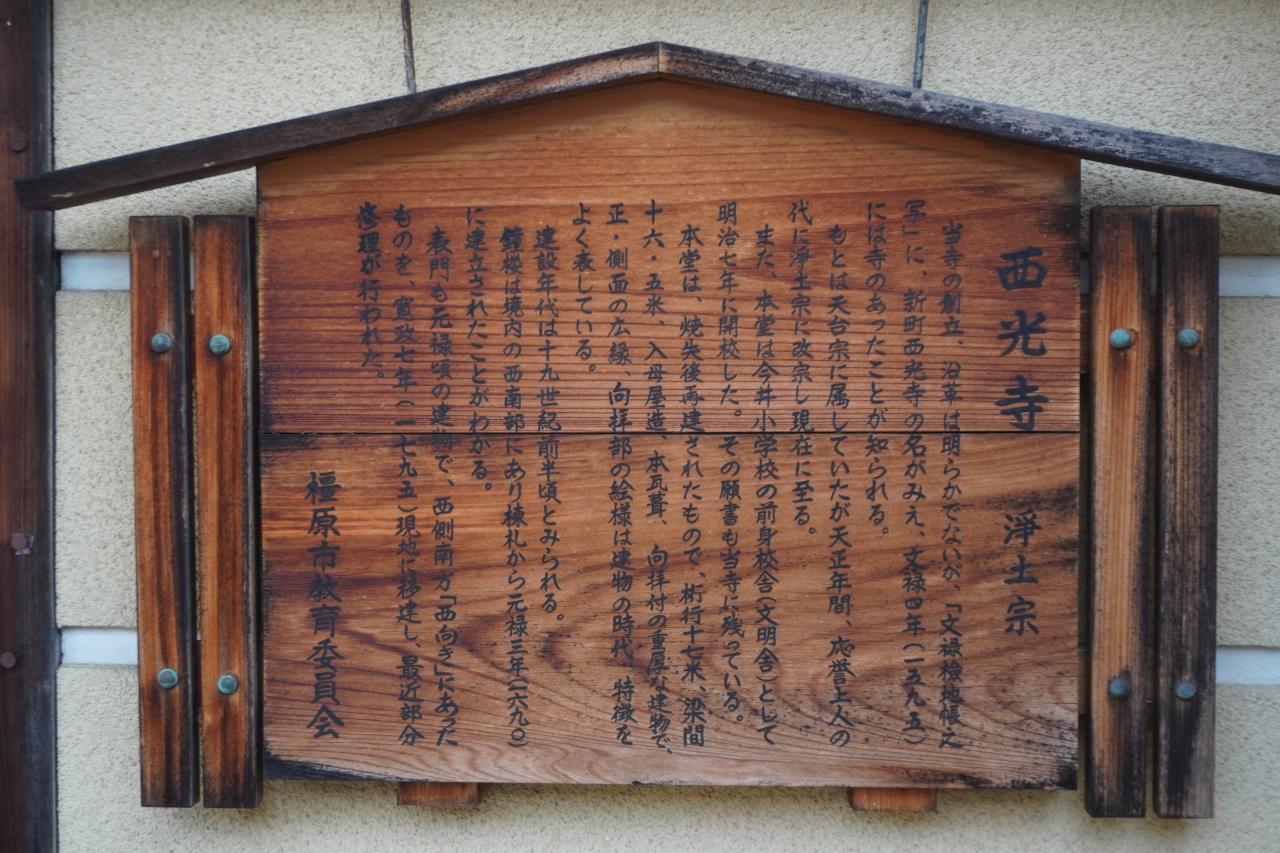 西光寺 浄土宗
当寺の創立、沿革は明らかでないが、「文禄検地帳之
写」に、新町西光寺の名がみえ、文禄四年(一五九五)
には寺のあったことが知られる。
もとは天台宗に属していたが天正年間、応誉上人の
代に浄土宗に改宗し現在に至る。
また、本堂は今井小学校の前身校舎(文明舎)として
明治七年に開校した。その願書も当寺に残っている。
本堂は、焼失後再建されたもので、桁行十七米、梁間
十六・五米、入母屋造、本瓦葺、向拝付の重厚な建物で、
正・側面の広縁、向拝部の絵様は建物の時代、特徴を
よく表している。
建設年代は十九世紀前半頃とみられる。
鐘楼は境内の西南部にあり棟札から元禄三年(一六九〇)
に建立されたことがわかる。
表門も元禄頃の建物で、西側南方「西向き」にあった
ものを、寛政七年(一七九五)現地に移建し、最近部分
修理が行われた。
橿原市教育委員会